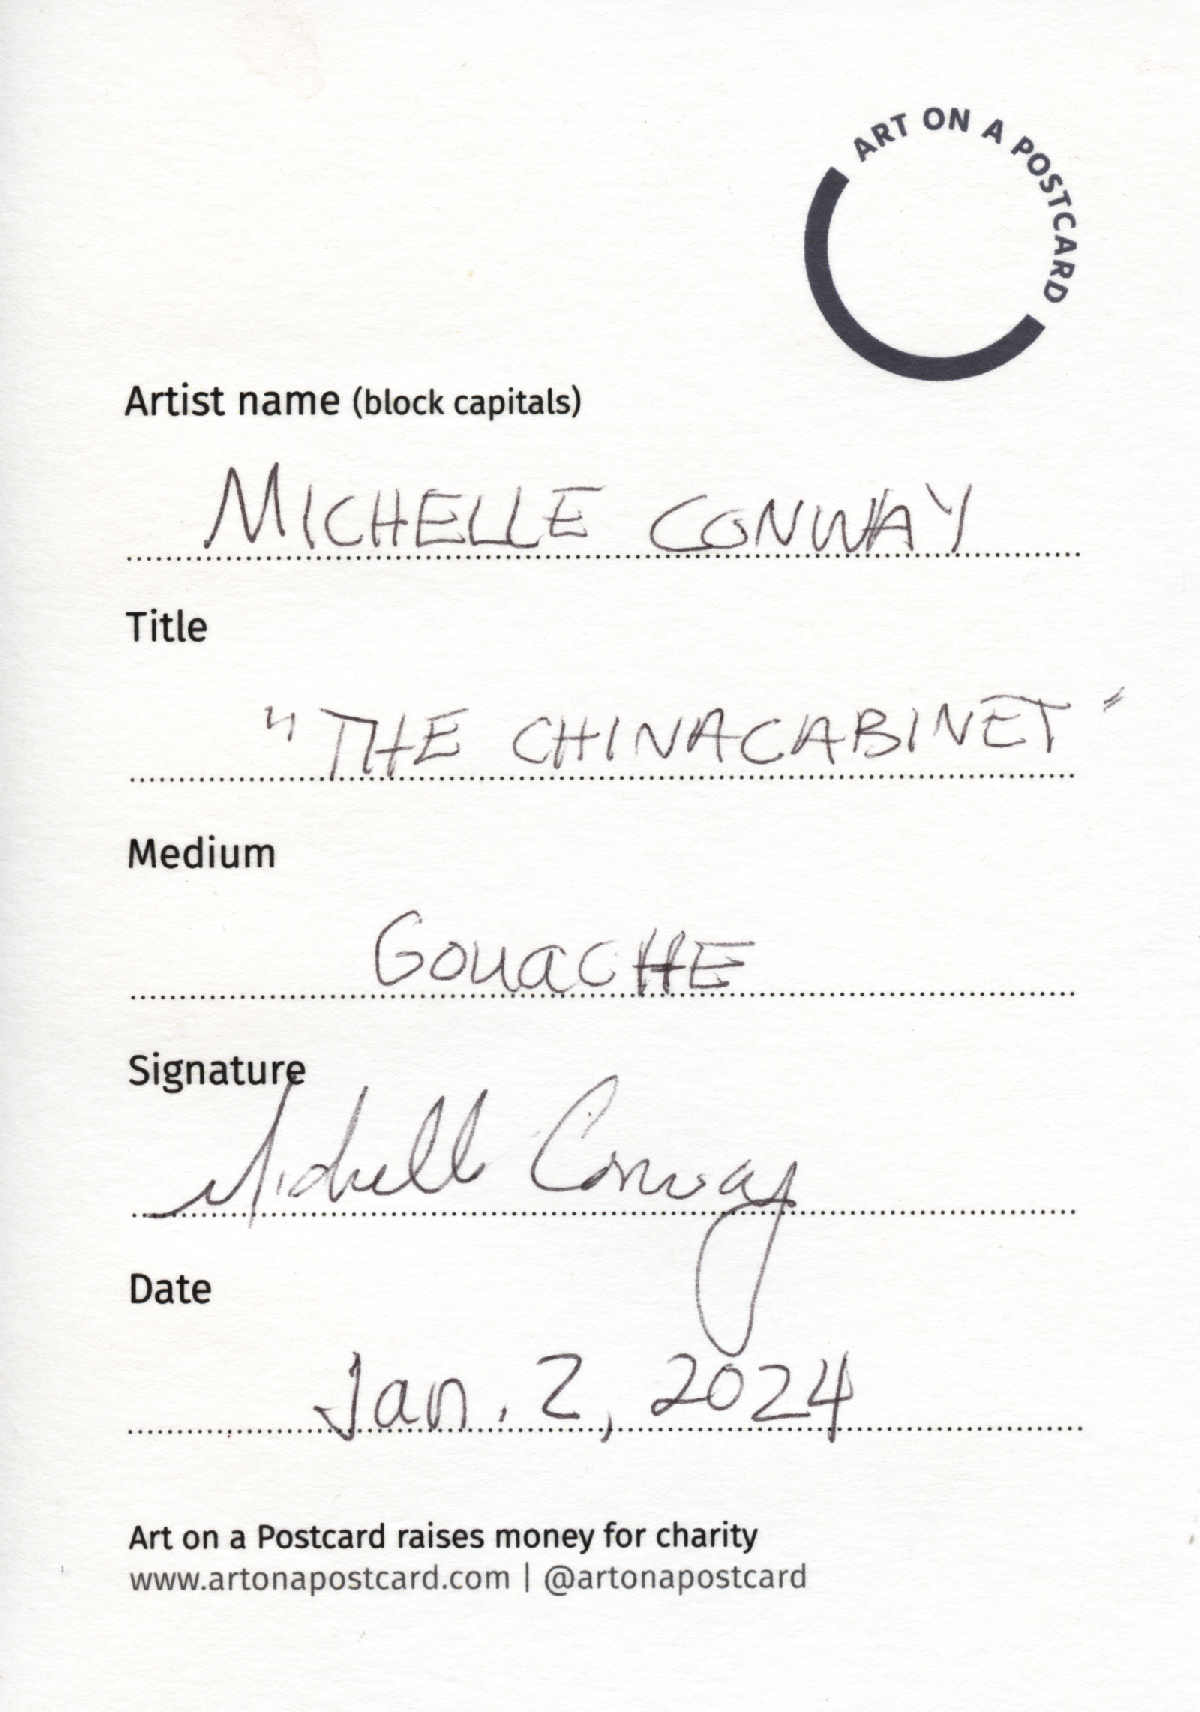 ART ON A POSTCARD
Artist name (block capitals)
MICHELLE CONWAY
Title
"THE CHINACABINET"
Medium
GOUACHE
Signature
Michelle Conway
Date
Jan. 2, 2024
Art on a Postcard raises money for charity
www.artonapostcard.com | @artonapostcard